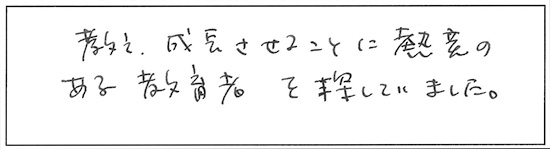 教え、成長させることに熱意の
ある教育者を探していました。